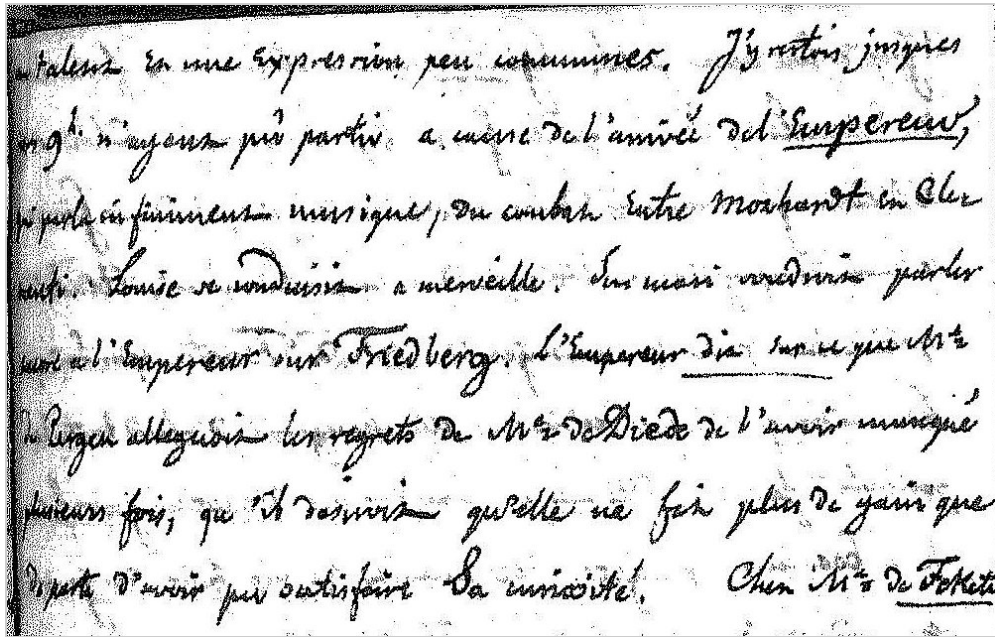 talent et une Expression peu communes. J'y restois jusques
9h. n'ayant pû partir a cause de l'arrivée de l'Empereur,
qui parla infiniment musique, du combat entre Mozhardt et Cle-
menti. Louise se conduisit a merveille. Son mari voudroit parler
a l'Empereur sur Friedberg. L'Empereur dit sur ce que Me
de Pergen alleguoit les regrets de Me de Diede de l'avoir manqué
plusieurs fois, qu'il desiroit qu'elle ne fit plus de gain que
de perte d'avoir pu satisfaire Sa curiosité. Chez Me de Fekete